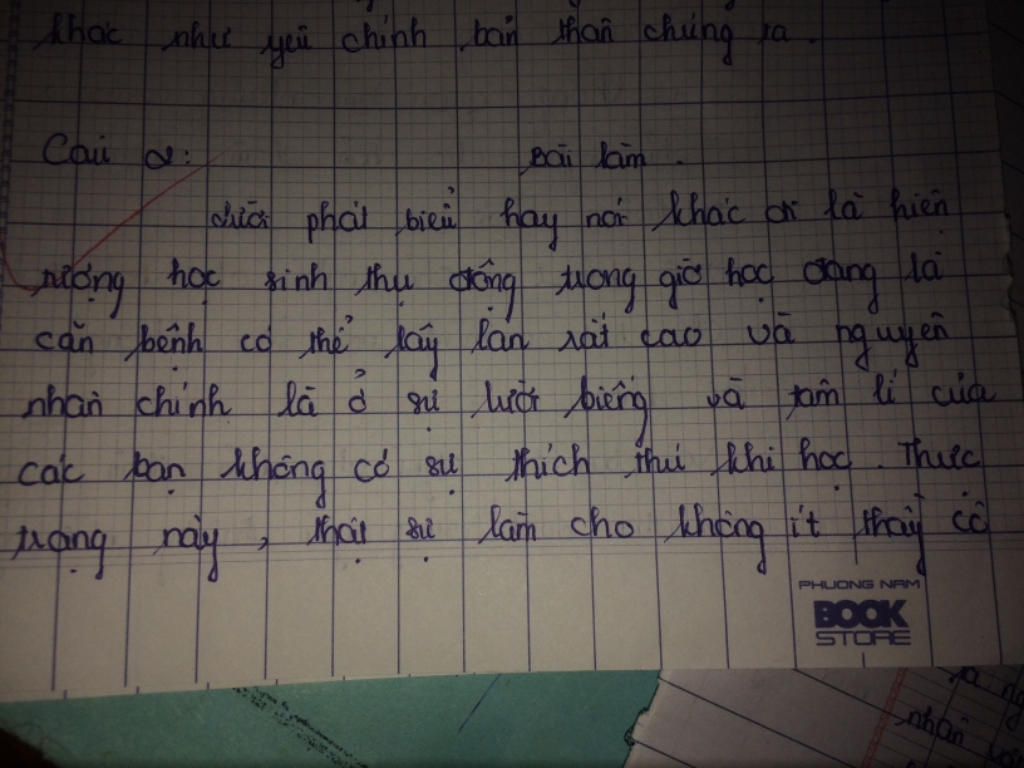 khác như yêu chính bản thân chúng ta.
Câu 2: Bài làm.
Lười phát biểu hay nói khác đi là hiện
tượng học sinh thụ động trong giờ học đang là
căn bệnh có thể lây lan rất cao và nguyên
nhân chính là ở sự lười biếng và tâm lí của
các bạn không có sự thích thú khi học. Thực
trạng này, thật sự làm cho không ít thầy cô
PHUONG NAM
BOOK
STORE
nhân